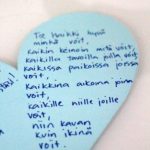 Tee kaikki hyvä
minkä voit,
kaikin keinoin mitä voit,
kaikilla tavoilla joilla voit,
kaikissa paikoissa joissa
voit,
kaikkina aikoina joina
voit,
kaikille niille joille
voit,
niin kauan
kuin ikinä
voit.